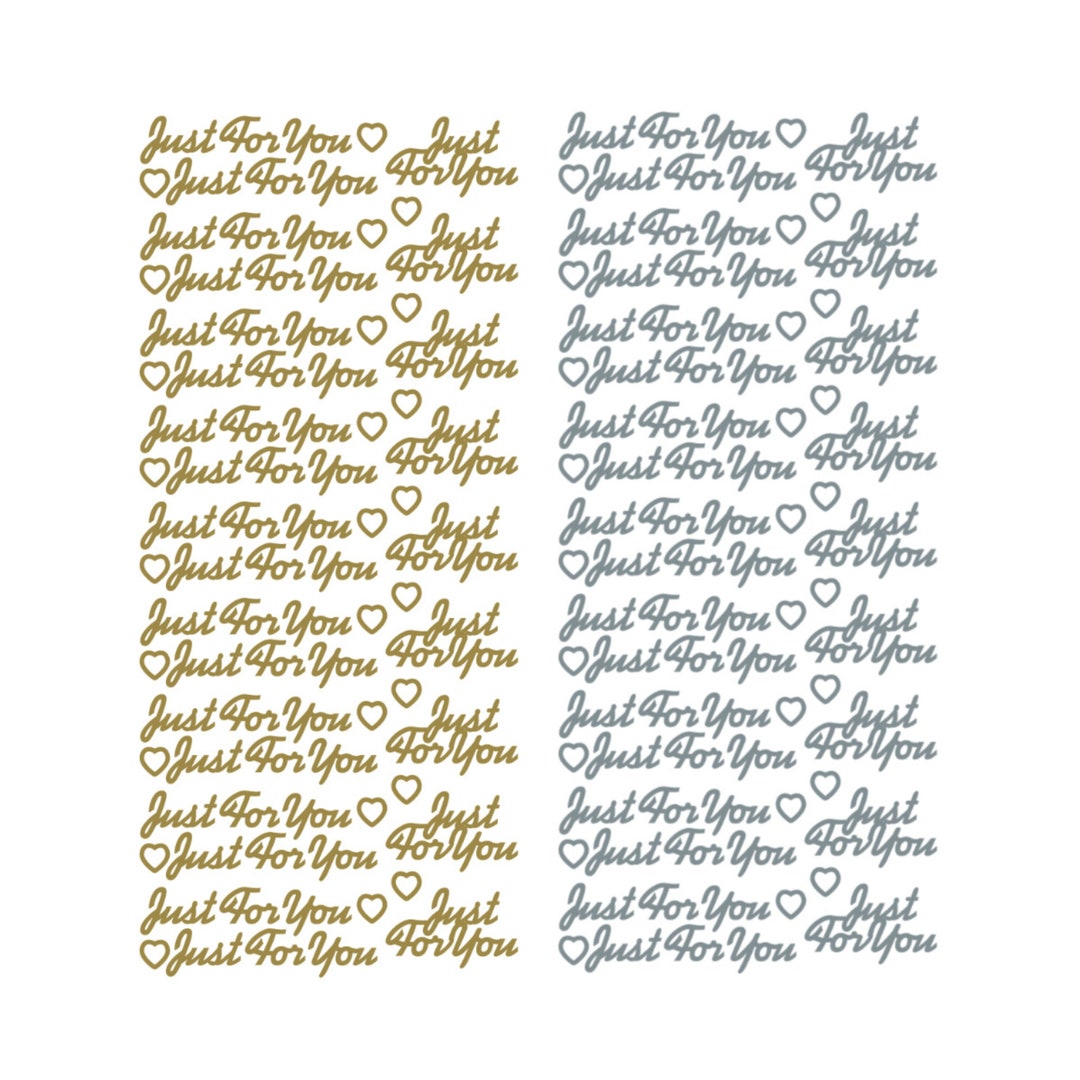 Just For You
Just For You
Just
For You
Just For You
Just For You
Just
For You
Just For You
Just For You
Just
For You
Just For You
Just For You
Just
For You
Just For You
Just For You
Just
For You
Just For You
Just For You
Just
For You
Just For You
Just For You
Just
For You
Just For You
Just For You
Just
For You
Just For You
Just For You
Just
For You
Just For You
Just For You
Just
For You
Just For You
Just For You
Just
For You
Just For You
Just For You
Just
For You
Just For You
Just For You
Just
For You
Just For You
Just For You
Just
For You
Just For You
Just For You
Just
For You
Just For You
Just For You
Just
For You
Just For You
Just For You
Just
For You
Just For You
Just For You
Just
For You